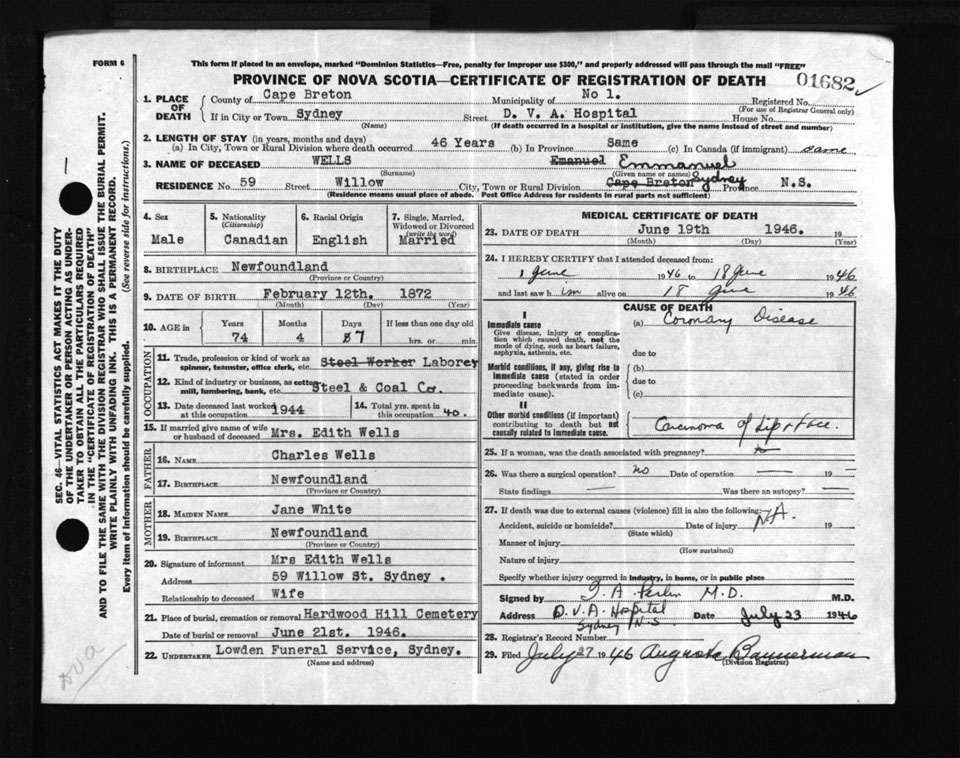 FORM 6
This form if placed in an envelope, marked "Dominion Statistics—Free, penalty for improper use $300," and properly addressed will pass through the mail "FREE"
PROVINCE OF NOVA SCOTIA—CERTIFICATE OF REGISTRATION OF DEATH 01682
1. PLACE OF DEATH County of Cape Breton Municipality of No 1. Registered No.
(For use of Registrar General only)
If in City or Town Sydney Street D. V. A. Hospital House No.
(Name) (If death occurred in a hospital or institution, give the name instead of street and number)
2. LENGTH OF STAY (in years, months and days)
(a) In City, Town or Rural Division where death occurred 46 Years (b) In Province Same (c) In Canada (if immigrant) same
3. NAME OF DECEASED WELLS Emanuel Emmanuel
(Surname) (Given name or names)
RESIDENCE No. 59 Street Willow City, Town or Rural Division Cape Breton Sydney Province N.S.
(Residence means usual place of abode. Post Office Address for residents in rural parts not sufficient)
4. Sex Male
5. Nationality (Citizenship) Canadian
6. Racial Origin English
7. Single, Married, Widowed or Divorced (write the word) Married
8. BIRTHPLACE Newfoundland
(Province or Country)
9. DATE OF BIRTH February 12th. 1872
(Month) (Day) (Year)
10. AGE in Years Months Days If less than one day old
74 4 7 hrs. or min.
OCCUPATION
11. Trade, profession or kind of work as spinner, teamster, office clerk, etc. Steel Worker Laborer
12. Kind of industry or business, as cotton mill, lumbering, bank, etc. Steel & Coal Co.
13. Date deceased last worked at this occupation 1944
14. Total yrs. spent in this occupation 40.
15. If married give name of wife or husband of deceased Mrs. Edith Wells
FATHER
16. NAME Charles Wells
17. BIRTHPLACE Newfoundland
(Province or Country)
MOTHER
18. MAIDEN NAME Jane White
19. BIRTHPLACE Newfoundland
(Province or Country)
20. Signature of informant Mrs Edith Wells
Address 59 Willow St. Sydney .
Relationship to deceased Wife
21. Place of burial, cremation or removal Hardwood Hill Cemetery
Date of burial or removal June 21st. 1946.
22. UNDERTAKER Lowden Funeral Service, Sydney.
(Name and address)
MEDICAL CERTIFICATE OF DEATH
23. DATE OF DEATH June 19th 1946. 19
(Month) (Day) (Year)
24. I HEREBY CERTIFY that I attended deceased from:
1 June 1946 to 18 June 1946
and last saw h im alive on 18 June 1946
CAUSE OF DEATH
I
Immediate cause
Give disease, injury or complication which caused death, not the mode of dying, such as heart failure, asphyxia, asthenia, etc.
(a) Coronary Disease
due to
Morbid conditions, if any, giving rise to immediate cause (stated in order proceeding backwards from immediate cause).
(b)
due to
(c)
II
Other morbid conditions (if important) contributing to death but not causally related to immediate cause.
Carcinoma of Lip & face.
25. If a woman, was the death associated with pregnancy?
26. Was there a surgical operation? no Date of operation 19
State findings Was there an autopsy?
27. If death was due to external causes (violence) fill in also the following:
Accident, suicide or homicide? Date of injury N.A. 19
(State which)
Manner of injury
(How sustained)
Nature of injury
Specify whether injury occurred in industry, in home, or in public place
Signed by M.D. M.D.
Address D.V.A Hospital Sydney N.S. Date July 23 1946
28. Registrar's Record Number
29. Filed July 27 1946 Augusta Bannerman
(Division Registrar)
SEC. 46—VITAL STATISTICS ACT MAKES IT THE DUTY
OF THE UNDERTAKER OR PERSON ACTING AS UNDER-
TAKER TO OBTAIN ALL THE PARTICULARS REQUIRED
IN THE "CERTIFICATE OF REGISTRATION OF DEATH"
AND TO FILE THE SAME WITH THE DIVISION REGISTRAR WHO SHALL ISSUE THE BURIAL PERMIT.
WRITE PLAINLY WITH UNFADING INK. THIS IS A PERMANENT RECORD.
Every item of information should be carefully supplied. (See reverse side for instructions.)